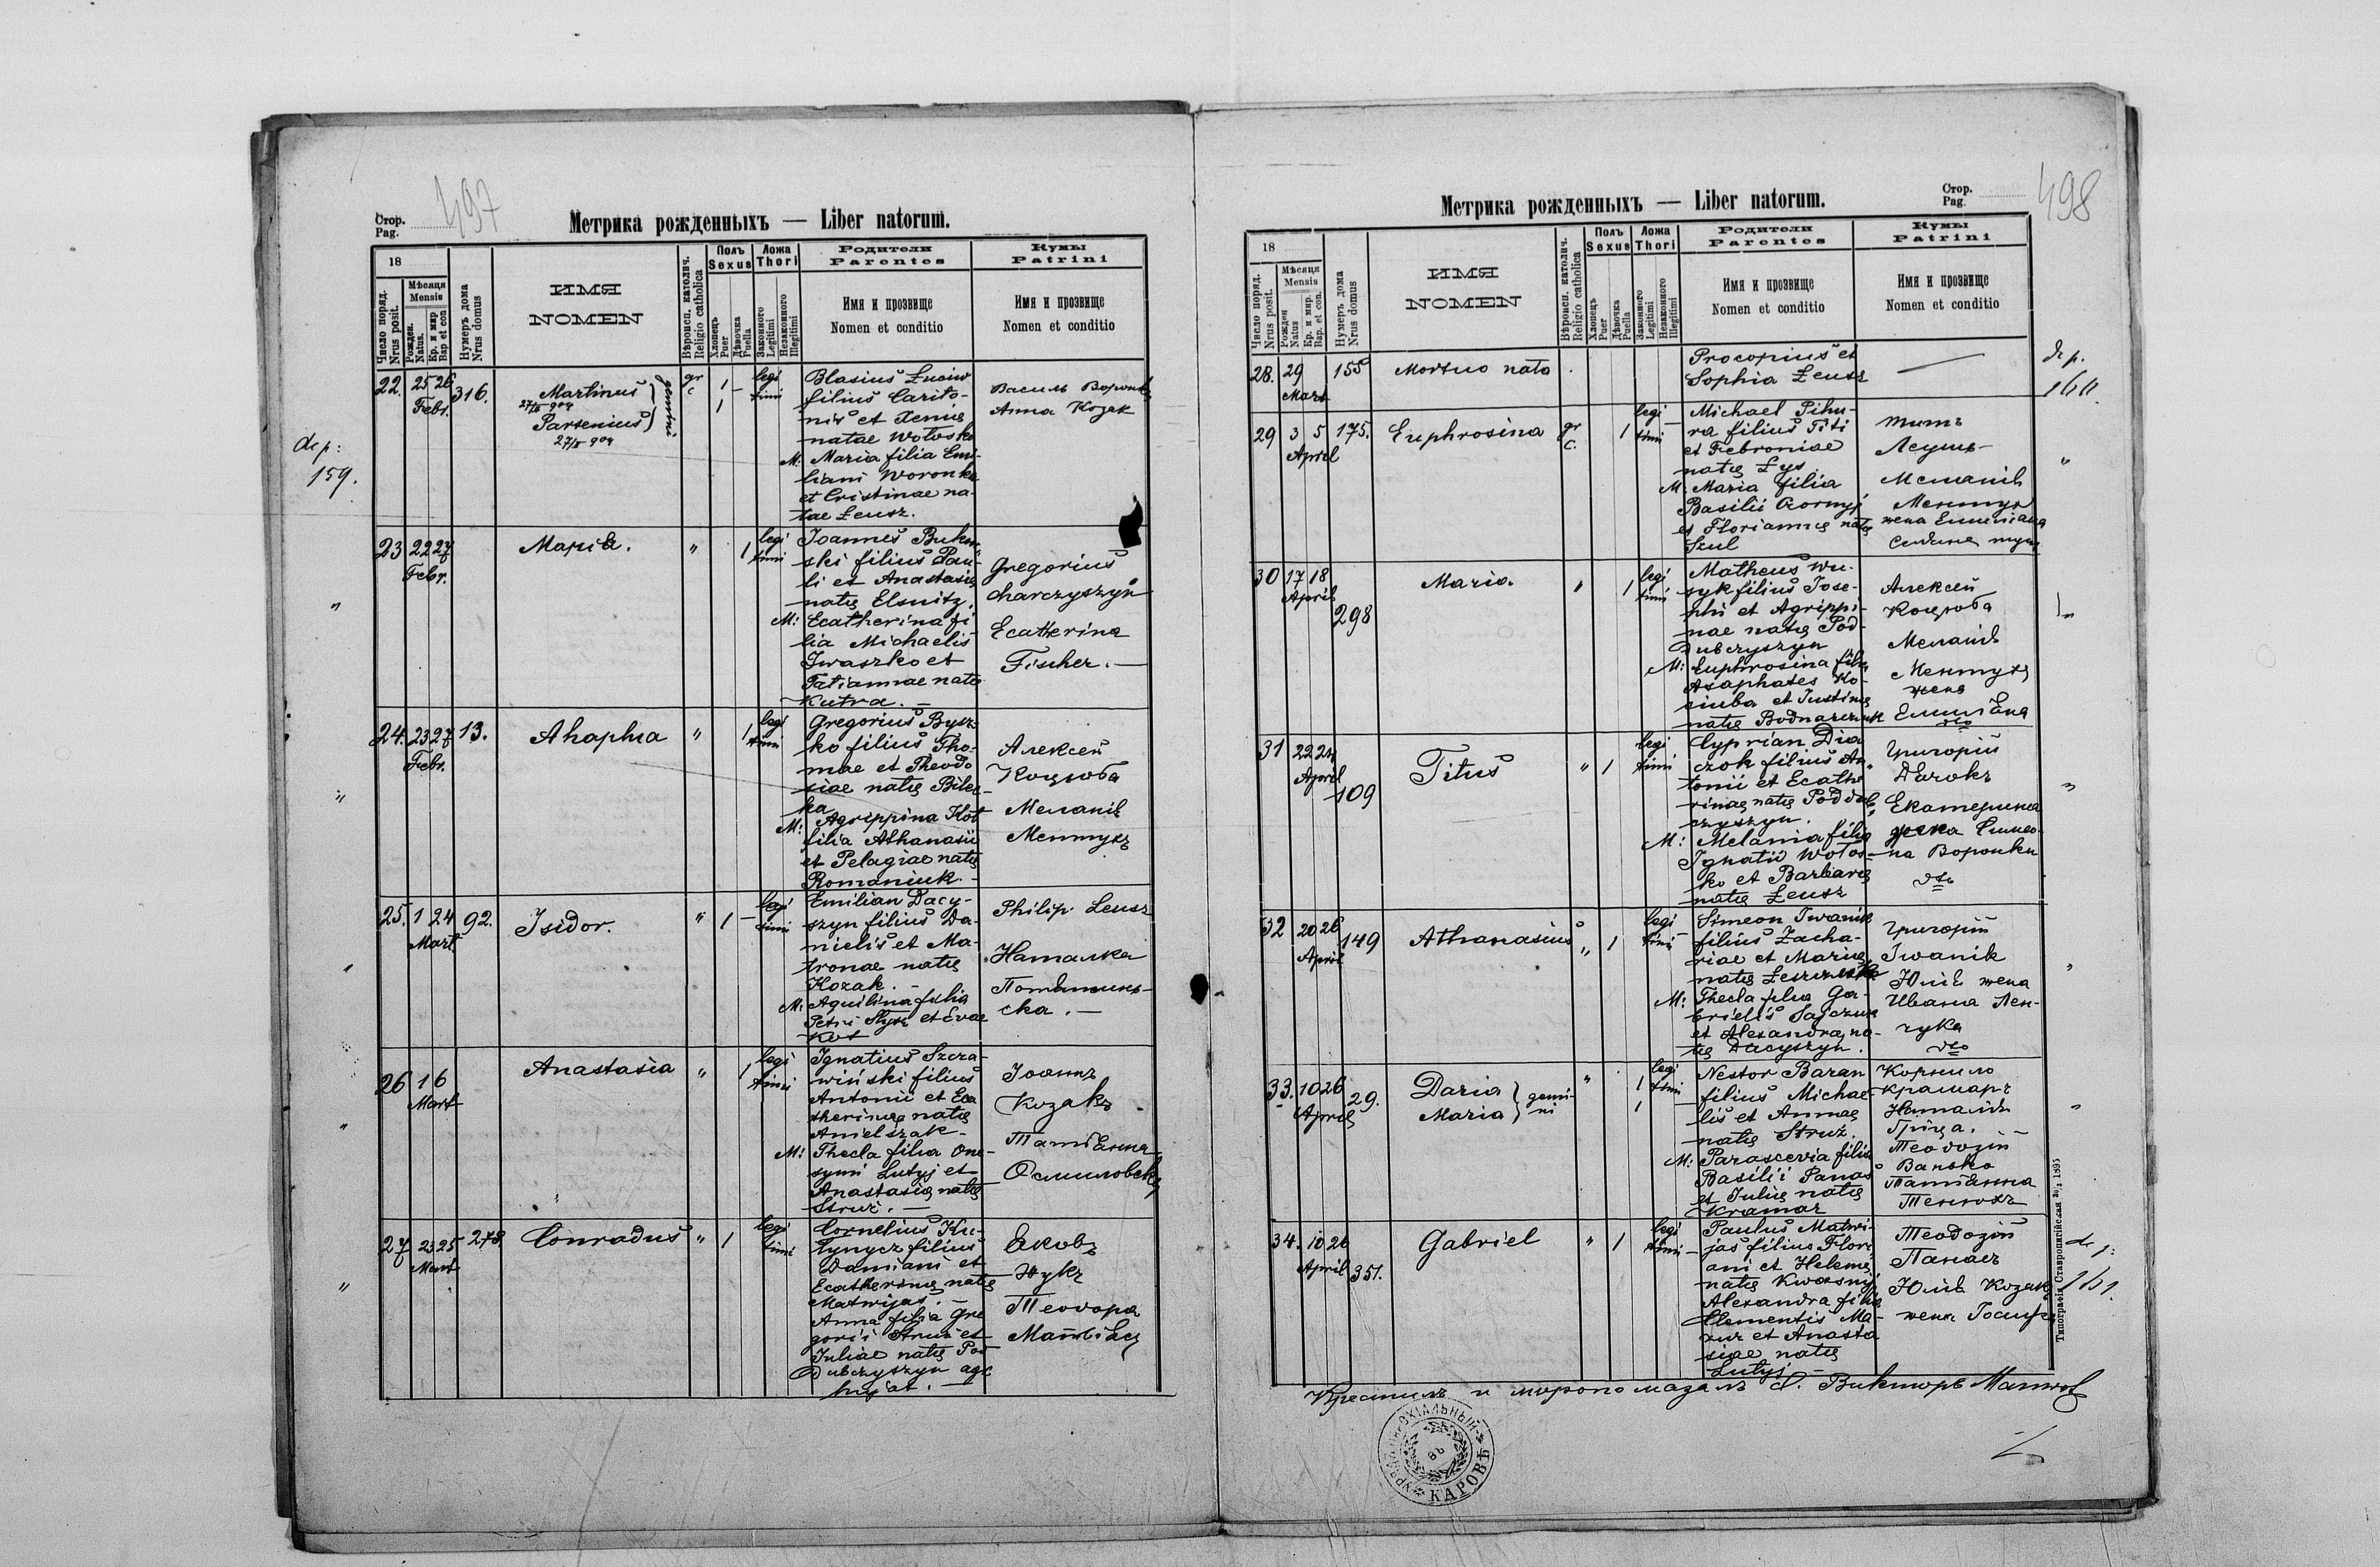 497
Стор.
Pag.
Метрика рожденныхъ — Liber natorum.
18
Число поряд.
Nrus posit.
Мѣсяця
Mensis
Рожден.
Natus.
Кр. и мир
Bap et con
Нумеръ дома
Nrus domus
ИМЯ
NOMEN
Вѣроисп. католич.
Religio catholica
Полъ
Sexus
Хлопець
Puer
Дѣвочка
Puella
Ложа
Thori
Законного
Legitimi
Незаконного
Illegitimi
Родители
Parentes
Имя и прозвище
Nomen et conditio
Кумы
Patrini
Имя и прозвище
Nomen et conditio
dep:
159.
22. 25 26 Febr. 316.
Martinus
Partenius
gemini
gr c
1
1
legi
timi
Blasius Łuciw
filius Carito-
nis et Xenię
natae Wołosko
M: Maria filia Emi-
liani Woronka
et Cristinae na-
tae Łeusz.
Василь
Анна Козак
23 22 27 Febr.
Маріа.
" 1
legi
timi
Joannes
ski filius Pau-
li et Anastasię
natę Elsnitz.
M: Ecatherina fi
lia Michaelis
Iwaszko et
Tatiannae natę
Kutra. —
Gregorius
Charczyszyn
Ecatherina
Fischer. —
24. 23 27 Febr. 13.
Ahaphia
" 1
legi
timi
Gregorius Bysz-
ko filius Tho-
mae et Theodo
siae natę
ka
M: Agrippina Kot
filia Athanasii
et Pelagiae natę
Romaniuk. —
Алексей
Коцюба
Меланія
Ментухъ
25. 1 24 Mart. 92.
Isidor.
" 1 —
legi
timi
Emilian Dacy-
szyn filius Da-
nielis et Ma-
tronae natę
Kozak. —
M: Aquilina filia
Petri et Evae
Kot
Philip Leusz
Наталка
ска. —
26 16 Mart
Anastasia
" 1
legi
timi
Ignatius Szcza-
wiński filius
Antonii et Eca
therinę natę
Anielszak —
M: Thecla filia One-
symi Lutyj et
Anastasię natę
Struź. —
Іоаннъ
Козакъ
27 23 25 Mart 278.
Conradus
" 1
legi
timi
Cornelius Ku-
łynycz filius
Damiani et
Ecatherinę natę
Matwijas. —
Anna filia Gre
gorii Struź et
Juliae natę Pod
dubczyszyn
Яковъ
Жукъ
Теодора
498
Стор.
Pag.
Метрика рожденныхъ — Liber natorum.
18
Число поряд.
Nrus posit.
Мѣсяця
Mensis
Рожден
Natus
Кр. и мир.
Bap. et con.
Нумеръ дома
Nrus domus
ИМЯ
NOMEN
Вѣроисп. католич.
Religio catholica
Полъ
Sexus
Хлопець
Puer
Дѣвочка
Puella
Ложа
Thori
Законного
Legitimi
Незаконного
Illegitimi
Родители
Parentes
Имя и прозвище
Nomen et conditio
Кумы
Patrini
Имя и прозвище
Nomen et conditio
28. 29 Mart 155
Mortuo nata
Procopius et
Sophia Łeusz
—
dep.
29 3 5 April 175.
Euphrosina
gr c. 1
legi
timi
Michael Pihu-
ra filius Titi
et Febroniae
natę Łys
M: Maria filia
Basilii Czornyj
et Floriannę natę
Szul
Титъ
Меланія
Ментух
жена
30 17 18 April 298
Maria.
" 1
legi
timi
Matheus Wu-
zyk filius Jose-
phi et Agrippi-
nae natę Pod-
dubczyszyn
M: Euphrosina filia
Asaphates Ko-
ciuba et Justinę
natę Bodnarczuk
Алексей
Коцюба
Меланія
Ментухъ
жена
31 22 24 April 109
Titus
" 1
legi
timi
Cyprian Dia
czok filius An-
tonii et Ecathe
rinae natę Poddub
czyszyn.
M: Melania filia
Ignatii Wołos-
ko et Barbarę
natę Łeusz
Григорій
Дѣчокъ
Екатерина
жена
на Воронки
32 20 26 April 149
Athanasius
" 1
legi
timi
Simeon Iwanik
filius Zacha-
riae et Marię
natę
M: Thecla filia Ga-
brielis Sajczuk
et Alexandrę na-
tę Dacyszyn.
Григорій
Iwanik
Юлія жена
Ивана Лев-
чука
33. 10 26 April 29.
Daria
Maria
gemi-
ni
" 1
1
legi
timi
Nestor Baran
filius Michae-
lis et Annae
natę Struź.
M: Parascevia filia
Basilii Panas
et Julię natę
Kramar
Корнило
Крамаръ
Наталія
Гріца.
Теодозій
Ванько
34. 10 26 April 351.
Gabriel
" 1
legi
timi
Paulus Matwi-
jas filius Flori
ani et Helenę
natę Kwasnyj
Alexandra filia
Clementis Ma-
zur et Anasta
siae natę
Lutyj —
Теодозій
Панасъ
Юлія Козакъ
жена Іосифа
161.
Типографія Ставропигійская 1895
Крестилъ и миропомазалъ о. Викторъ
КАРОВѢ